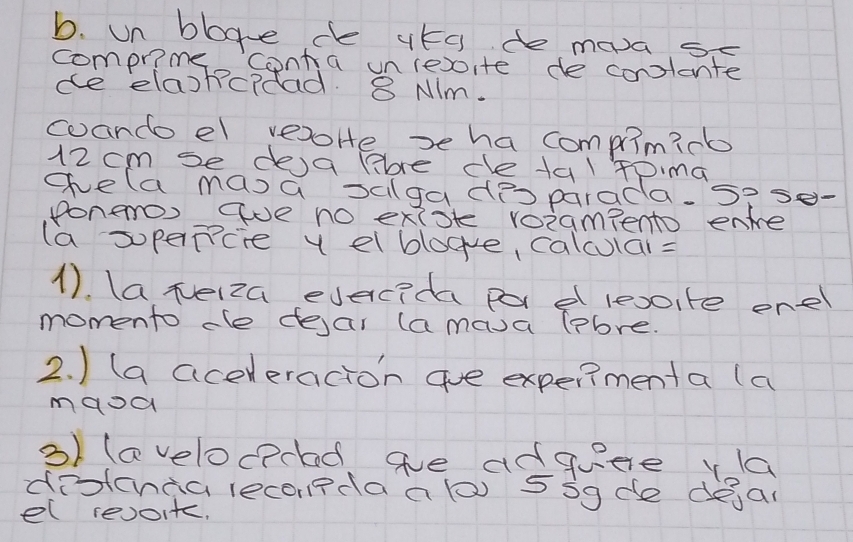 b. un bloque de 4kg de masa se
comprime contra un resorte de constante
de elasticidad. 8 N/m.
cuando el resorte se ha comprimido
12 cm se deja libre de tal forma
que la masa salga disparada. Si su-
ponemos que no existe rozamiento entre
la superficie y el bloque, calcular =
1). la fuerza ejercida por el resorte en el
momento de dejar la masa libre.
2.) la aceleración que experimenta la
masa
3) la velocidad que adquiere y la
distancia recorrida a los 5 sg de dejar
el resorte.